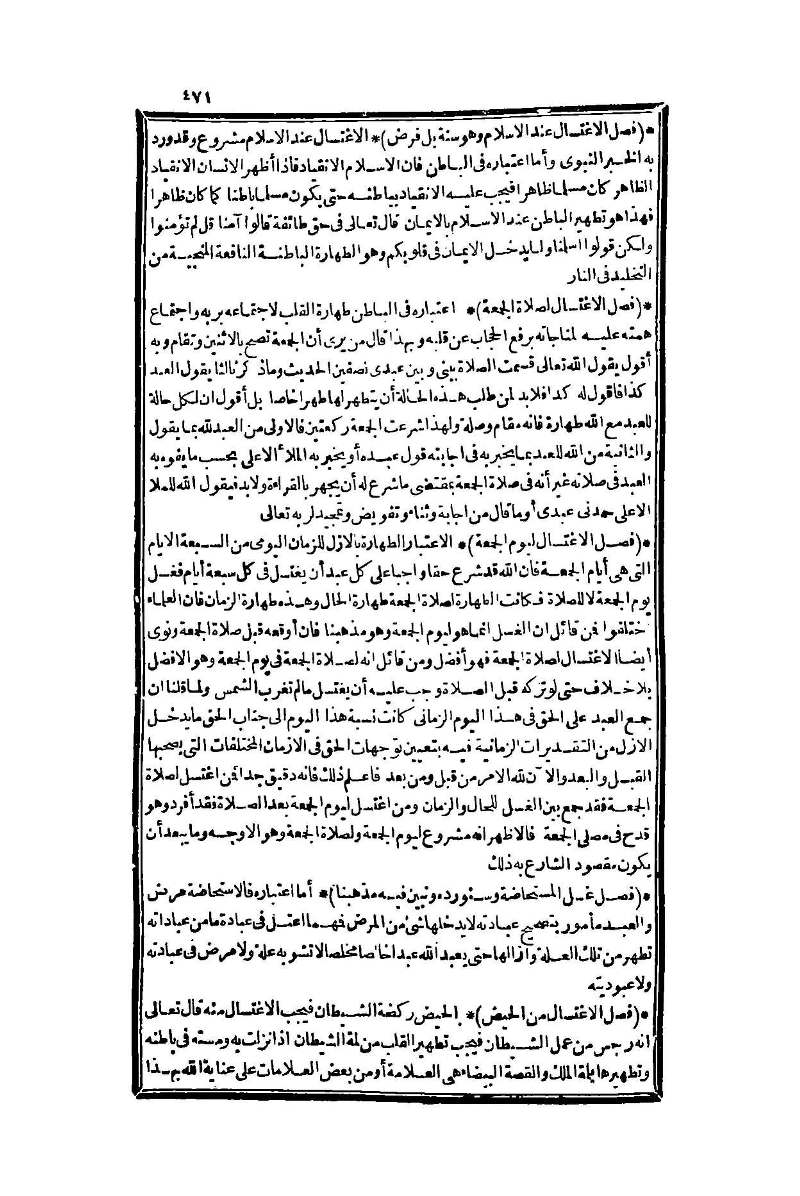 ٤٧١
*(فصل الاغتسال عند الاسلام وهو سنة بل فرض)* الاغتسال عند الاسلام مشروع وقد ورد
به الخبر النبوى وأما اعتباره فى الباطن فان الاسلام الانقياد فاذا أظهر الانسان الانقياد
الظاهر كان مسلما ظاهرا فيجب عليه الانقياد بباطنه حتى يكون مسلما باطنا كما كان ظاهرا
فهذا هو تطهير الباطن عند الاسلام بالايمان قال تعالى فى حق طائفة قالوا آمنا قل لم تؤمنوا
ولكن قولوا أسلمنا ولما يدخل الايمان فى قلوبكم وهو الطهارة الباطنة النافعة المنجية من
التخليد فى النار
*(فصل الاغتسال لصلاة الجمعة)* اعتباره فى الباطن طهارة القلب لاجتماعه بربه واجتماع
همته عليه لمناجاته برفع الحجاب عن قلبه وبهذا قال من يرى أن الجمعة تصح بالاثنين وتقام وبه
أقول يقول الله تعالى قسمت الصلاة بينى وبين عبدى نصفين الحديث وما ذكر ثالثا يقول العبد
كذا فاقول له كذا فلابد لمن طلب هذه الحالة أن يتطهر لها طهرا خاصا بل أقول ان لكل حالة
للعبد مع الله طهارة فانه مقام وصلة ولهذا شرعت الجمعة ركعتين فالاولى من العبد لله بما يقول
والثانية من الله للعبد بما يخبر به فى اجابته قول عبده أو يخبر به الملأ الاعلى بحسب ما يفوه به
العبد فى صلاته غير أنه فى صلاة الجمعة بمقتضى ما شرع له أن يجهر بالقراءة ولابد فيقول الله للملا
الاعلى حمدنى عبدى أو ما قال من اجابة وثناء وتفويض وتمجيد لربه تعالى
*(فصل الاغتسال ليوم الجمعة)* الاعتبار الطهارة بالازل للزمان اليومى من السبعة الايام
التى هى أيام الجمعة فان الله قد شرع حقا واجبا على كل عبد أن يغتسل فى كل سبعة أيام فغسل
يوم الجمعة لا للصلاة فكانت الطهارة لصلاة الجمعة طهارة الحال وهذه طهارة الزمان فان العلماء
اختلفوا فمن قائل ان الغسل انما هو ليوم الجمعة وهو مذهبنا فان أوقعه قبل صلاة الجمعة ونوى
أيضا الاغتسال لصلاة الجمعة فهو أفضل ومن قائل انه لصلاة الجمعة فى يوم الجمعة وهو الافضل
بلا خلاف حتى لو تركه قبل الصلاة وجب عليه أن يغتسل مالم تغرب الشمس ولما قلنا ان
جمع العبد على الحق فى هذا اليوم الزمانى كانت نسبة هذا اليوم الى جناب الحق ما يدخل
الازل من التقديرات الزمانية فيه بتعيين توجهات الحق فى الازمان المختلفات التى يصحبها
القبل والبعد والآن لله الامر من قبل ومن بعد فاعلم ذلك فانه دقيق جدا فمن اغتسل لصلاة
الجمعة فقد جمع بين الغسل للحال والزمان ومن اغتسل ليوم الجمعة بعد الصلاة فقد أفرد وهو
قدح فى مصلى الجمعة فالاظهر انه مشروع ليوم الجمعة ولصلاة الجمعة وهو الاوجه وما يبعد أن
يكون مقصود الشارع به ذلك
*(فصل غسل المستحاضة وسنورده ونبين فيه مذهبنا)* أما اعتباره فالاستحاضة مرض
والعبد مأمور بتصحيح عبادته لا يدخلها شئ من المرض فهما اعتل فى عبادة ما من عباداته
تطهر من تلك العلة وأزالها حتى يعبد الله عبدا خالصا مخلصا لا تشوبه علة ولا مرض فى عبادته
ولا عبوديته
*(فصل الاغتسال من الحيض)* الحيض ركضة الشيطان فيجب الاغتسال منه قال تعالى
انه رجس من عمل الشيطان فيجب تطهير القلب من لمة الشيطان اذا نزلت به ومسته فى باطنه
وتطهيرها بلمة الملك والقصة البيضاء هى العلامة أو من بعض العلامات على عناية الله بهذا